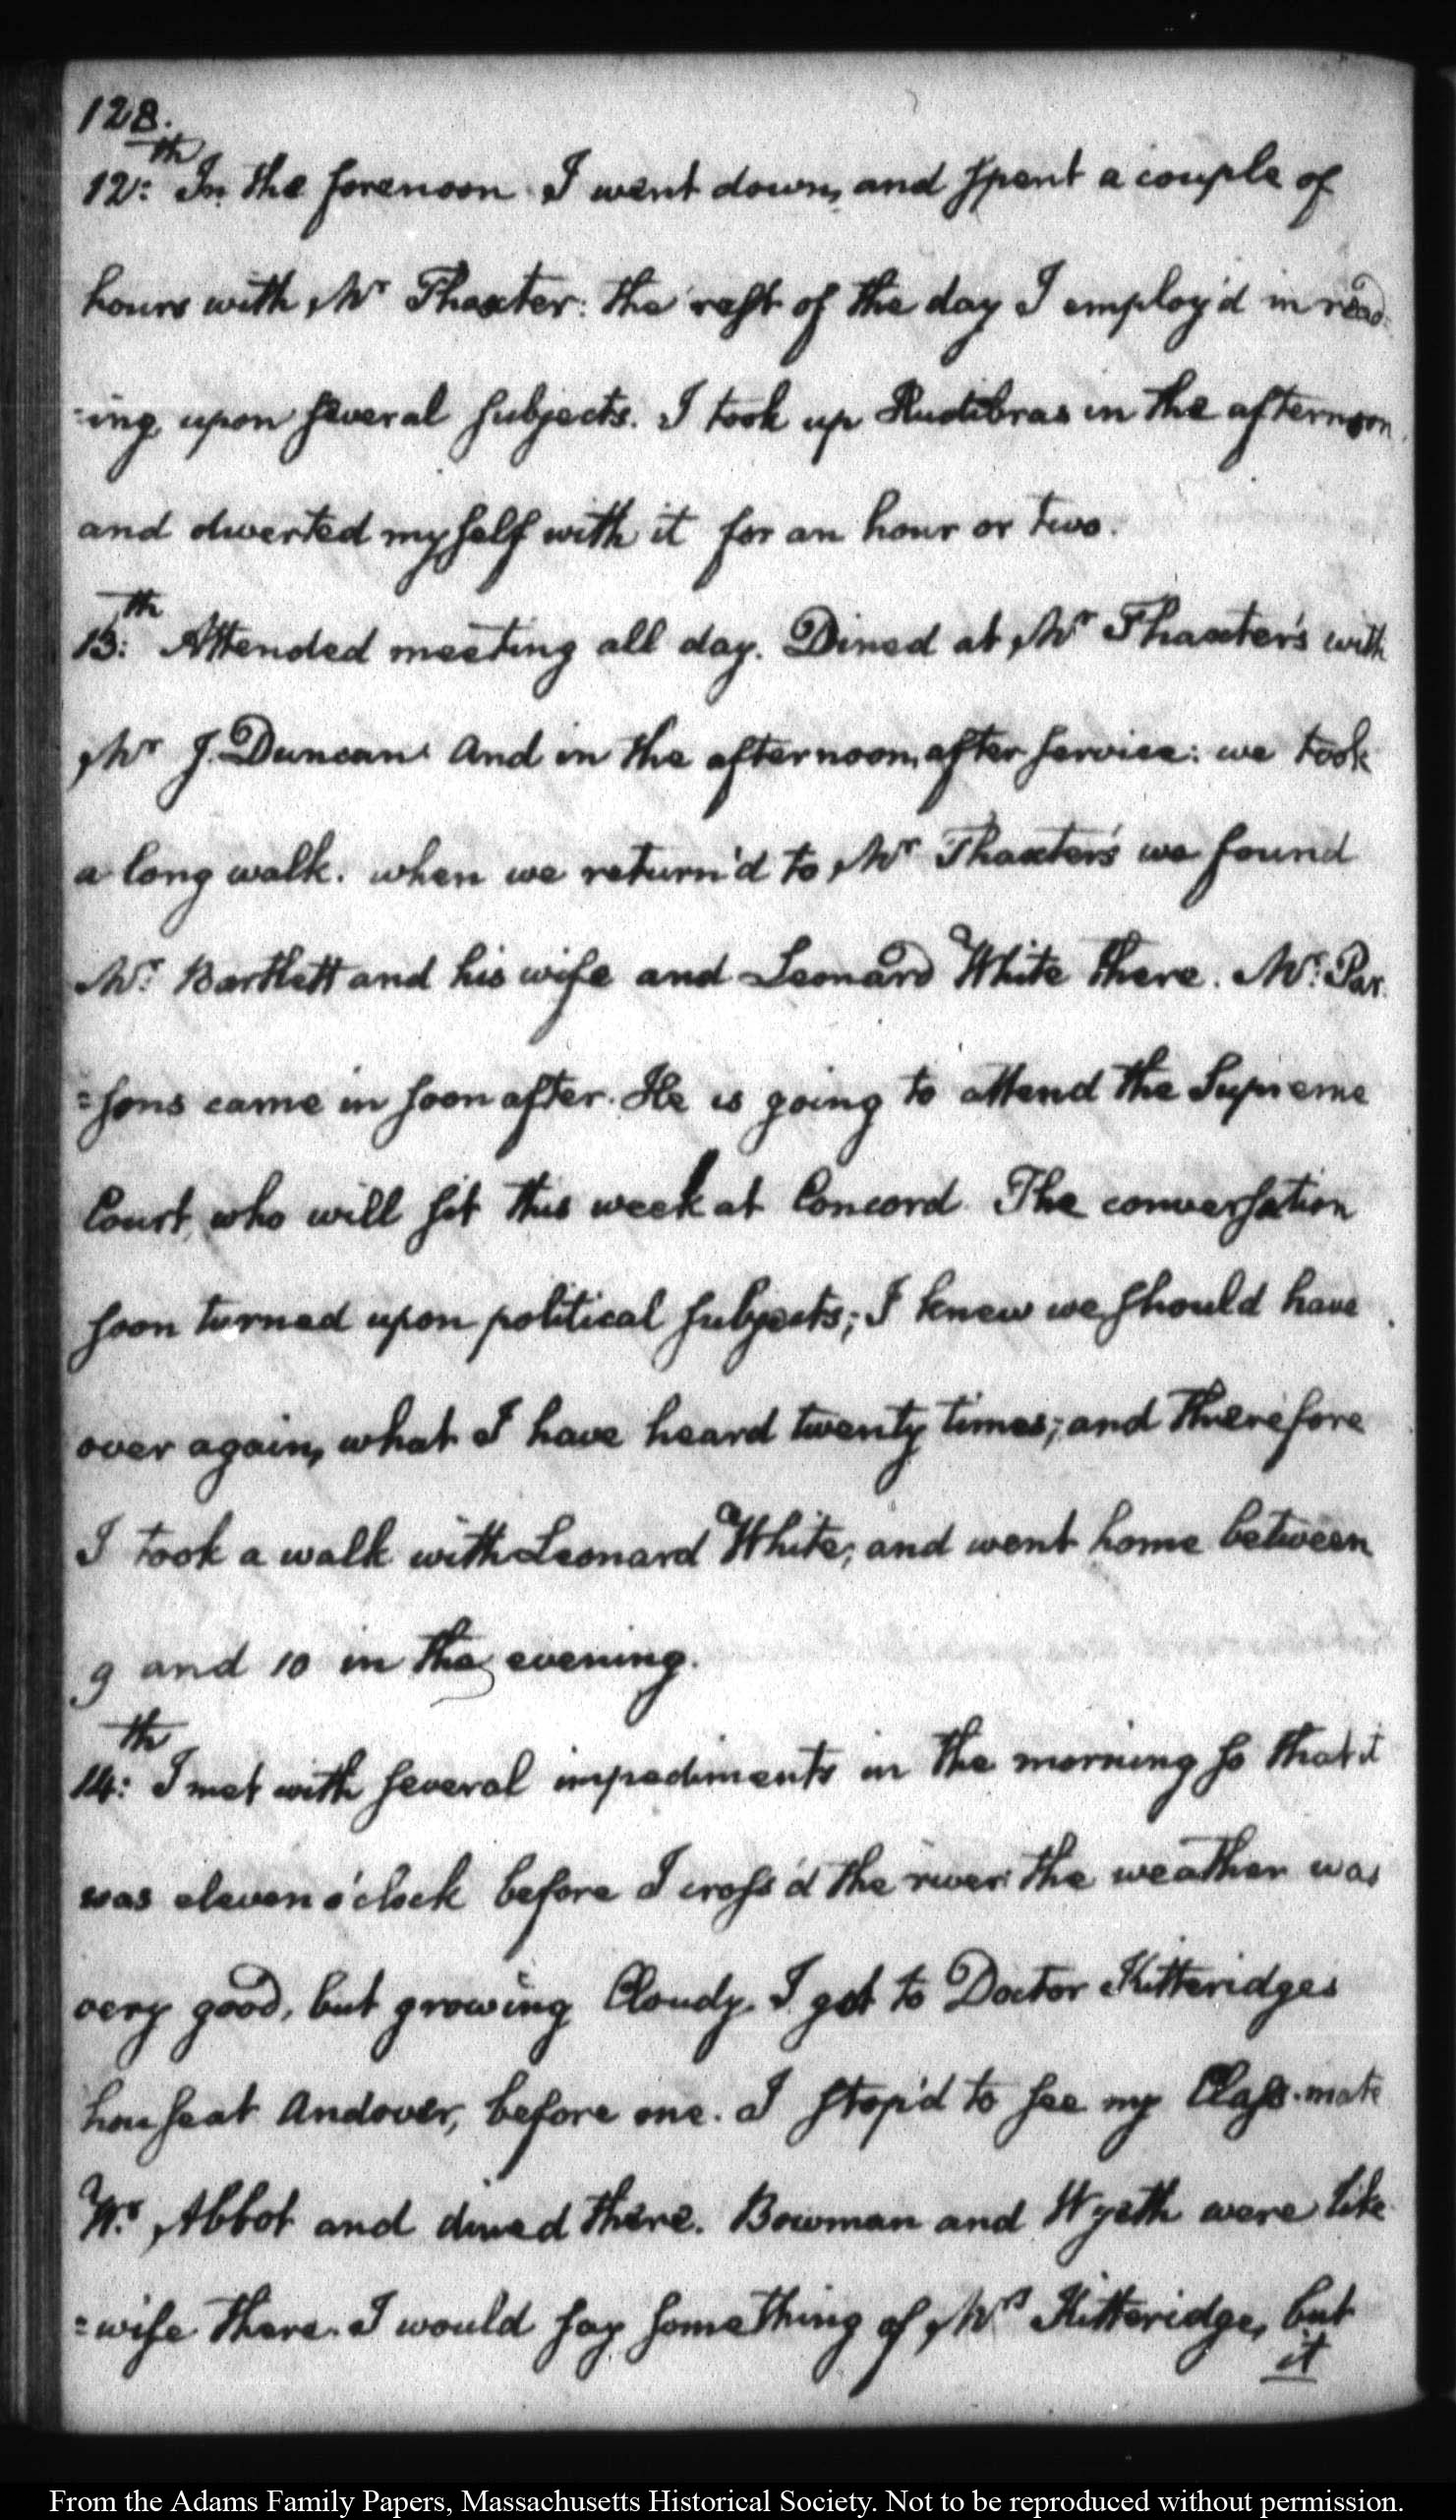 128.
12:th In the forenoon I went down, and spent a couple of
hours with Mr Thaxter: the rest of the day I employ'd in read-
-ing, upon several subjects. I took up Hudibras in the afternoon,
and diverted myself with it for an hour or two.
13:th Attended meeting all day. Dined at Mr Thaxter's with
Mr J. Duncan. And in the afternoon, after service: we took
a long walk. when we return'd to Mr Thaxter's we found
Mr. Bartlett and his wife and Leonard White there. Mr. Par-
=sons came in soon after. He is going to attend the Supreme
Court, who will sit this week at Concord. The conversation
soon turned upon political subjects; I knew we should have
over again, what I have heard twenty times; and therefore
I took a walk with Leonard White; and went home between
9 and 10 in the evening.
14:th I met with several impediments in the morning so that it
was eleven o'clock before I cross'd the river: the weather was
very good, but growing Cloudy. I got to Doctor Kitteridges
house at Andover, before one. I stop'd to see my Class-mate
Abbot and dined there. Bowman and Wyeth were like
=wise there. I would say something of Mrs Kitteridge, but
it
From the Adams Family Papers, Massachusetts Historical Society. Not to be reproduced without permission.